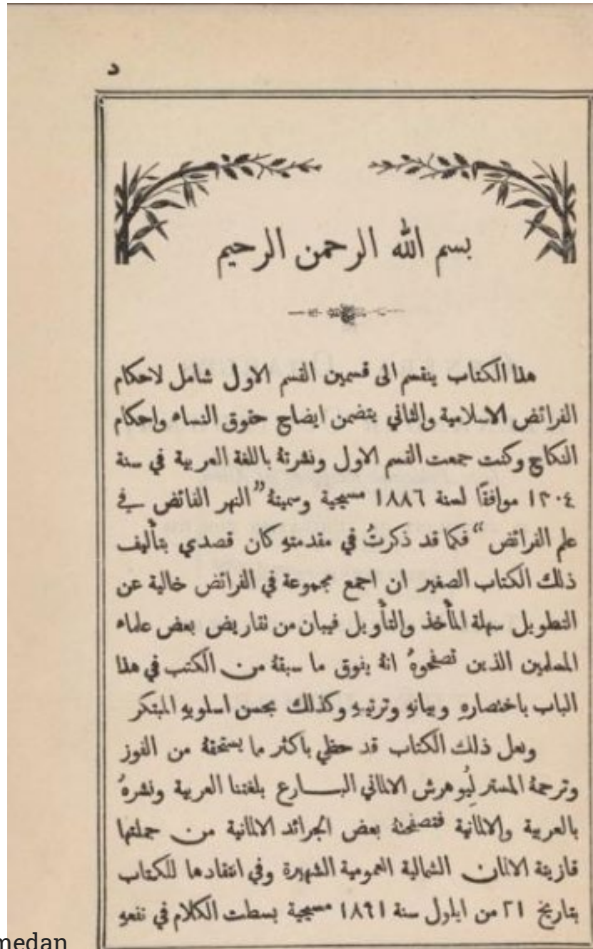 د
بسم الله الرحمن الرحيم
هذا الكتاب ينقسم الى قسمين القسم الاول شامل لاحكام
الفرائض الاسلامية والثاني يتضمن ايضاح حقوق النساء واحكام
النكاح وكنت جمعت القسم الاول ونشرتهُ باللغة العربية في سنة
١٣٠٤ موافقًا لسنة ١٨٨٦ مسيحية وسميتهُ "النهر الفائض في
علم الفرائض" فكما قد ذكرتُ في مقدمتهِ كان قصدي بتأليف
ذلك الكتاب الصغير ان اجمع مجموعة في الفرائض خالية عن
التطويل سهلة المأخذ والتأويل فيبان من تقاريض بعض علماء
المسلمين الذين تصفحوهُ انهُ يفوق ما سبقهُ من الكتب في هذا
الباب باختصارهِ وبيانهِ وترتيبهِ وكذلك بحسن اسلوبهِ المبتكر
ولعل ذلك الكتاب قد حظي باكثر ما يستحقهُ من الفوز
وترجمهُ المستر ليُو هرش الالماني البـــارع بلغتنا العربية ونشرهُ
بالعربية والالمانية فتصفحتهُ بعض الجرائد الالمانية من جملتها
قازيتة الالمان الشمالية العمومية الشهيرة وفي انتقادها للكتاب
بتاريخ ٢١ من ايلول سنة ١٨٩١ مسيحية بسطت الكلام في نفعهِ
medan